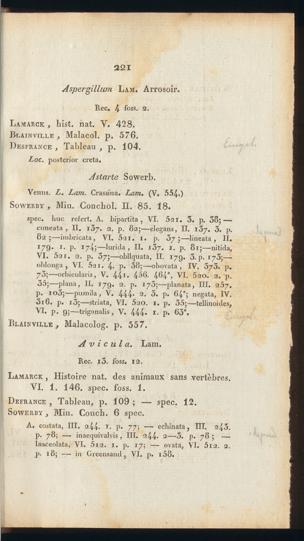 221
Aspergillum LAM. Arrosoir.
Rec. 4 foss. 2.
LAMARCK, hist. nat. V. 428.
BLAINVILLE, Malacol. p. 576.
DESFRANCE, Tableau, p. 104.
Loc. posterior creta.
Astarte Sowerb.
Venus. L. Lam. Crasina. Lam. (V. 554.)
SOWERBY, Min. Conchol. II. 85. 18.
spec. huc refert. A. bipartita, VI. 521. 3. p. 38;—
cuneata, II. 137. 2. p. 82;—elegans, II. 137. 3. p.
82;—imbricata, VI. 521. 1. p. 37;—lineata, II.
179. 1. p. 174;—lurida, II. 137. 1. p. 81;—nitida,
VI. 521. 2. p. 37;—obliquata, II. 179. 3. p. 173;—
oblonga, VI. 521. 4. p. 38;—obovata, IV. 373. p.
73;—orbicularis, V. 441. 456. 464*. VI. 520. 2. p.
35;—plana, II. 179. 2. p. 173;—planata, III. 257.
p. 103;—pumila, V. 444. 2. 3. p. 64*; negata, IV.
316. p. 13;—striata, VI. 520. 1. p. 35;—tellinoides,
VI. p. 9;—trigonalis, V. 444. 1. p. 63*.
BLAINVILLE, Malacolog. p. 557.
Avicula. Lam.
Rec. 13. foss. 12.
LAMARCK, Histoire nat. des animaux sans vertèbres.
VI. 1. 146. spec. foss. 1.
DEFRANCE, Tableau, p. 109; — spec. 12.
SOWERBY, Min. Conch. 6 spec.
A. costata, III. 244. 1. p. 77; — echinata, III. 243.
p. 78; — inaequivalvis, III. 244. 2—3. p. 78; —
lanceolata, VI. 512. 1. p. 17; — ovata, VI. 512. 2.
p. 18; — in Greensand, VI. p. 158.